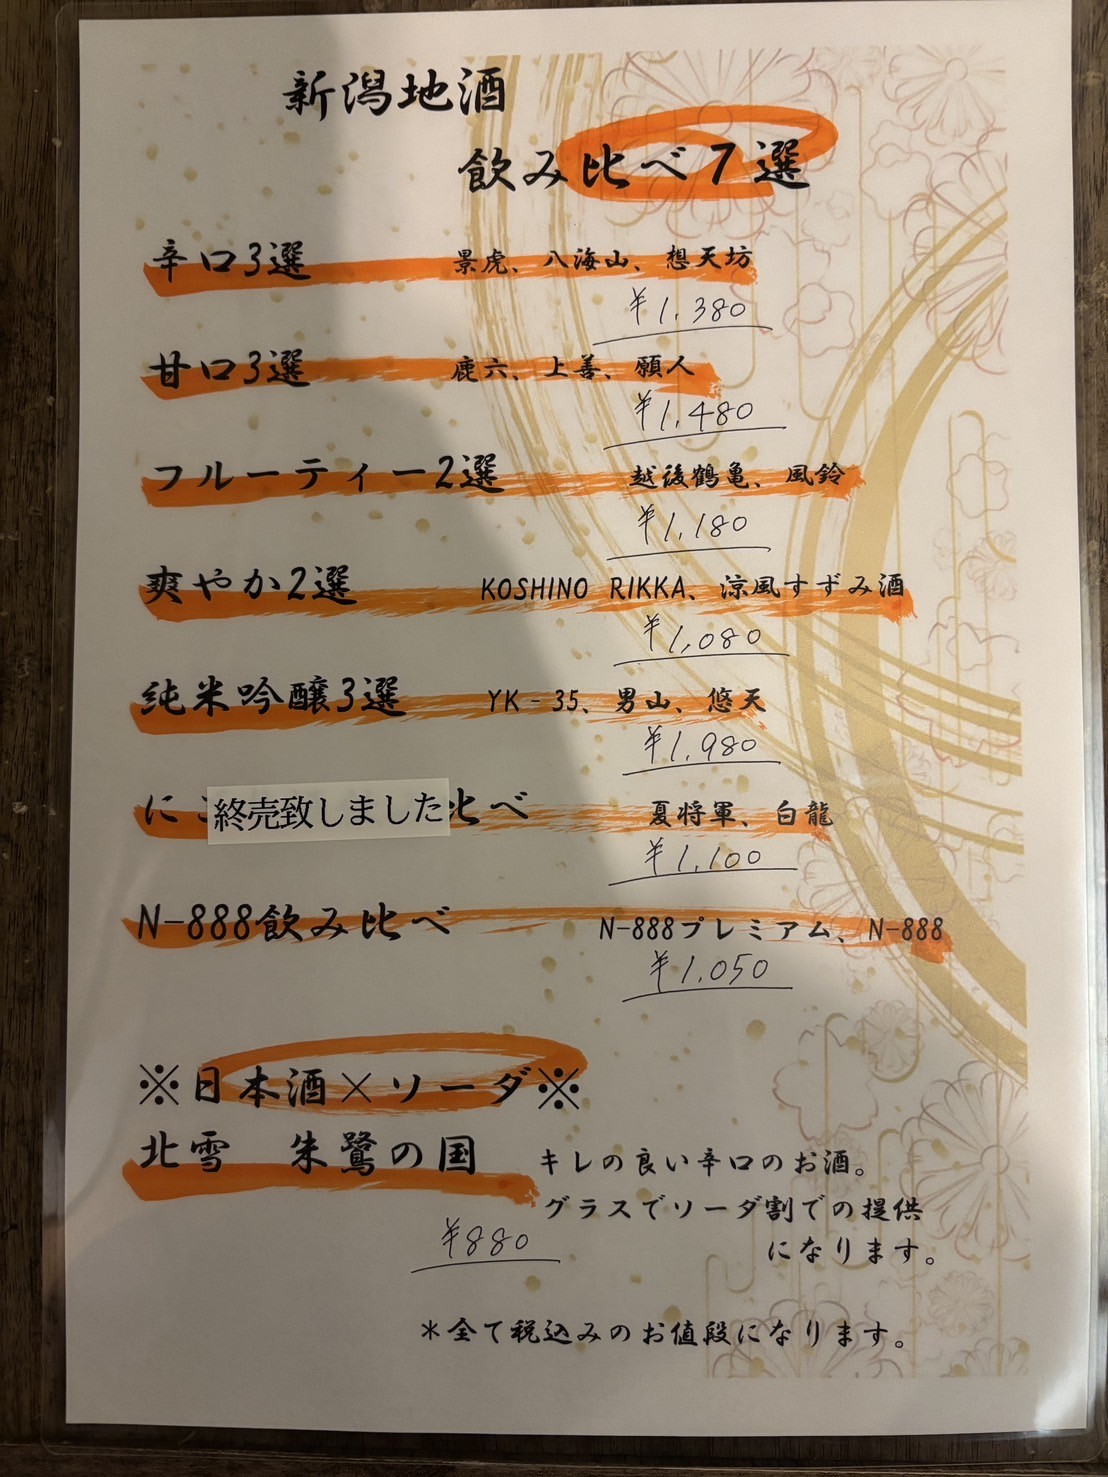 新潟地酒
飲み比べ7選
辛口3選 景虎、八海山、想天坊
¥1,380
甘口3選 鹿六、上善、願人
¥1,480
フルーティー2選 越後鶴亀、風鈴
¥1,180
爽やか2選 KOSHINO RIKKA、涼風すずみ酒
¥1,080
純米吟醸3選 YK-35、男山、悠天
¥1,980
に 終売致しました 比べ 夏将軍、白龍
¥1,100
N-888飲み比べ N-888プレミアム、N-888
¥1,050
※日本酒×ソーダ※
北雪 朱鷺の国 キレの良い辛口のお酒。
グラスでソーダ割での提供
になります。
¥880
*全て税込みのお値段になります。